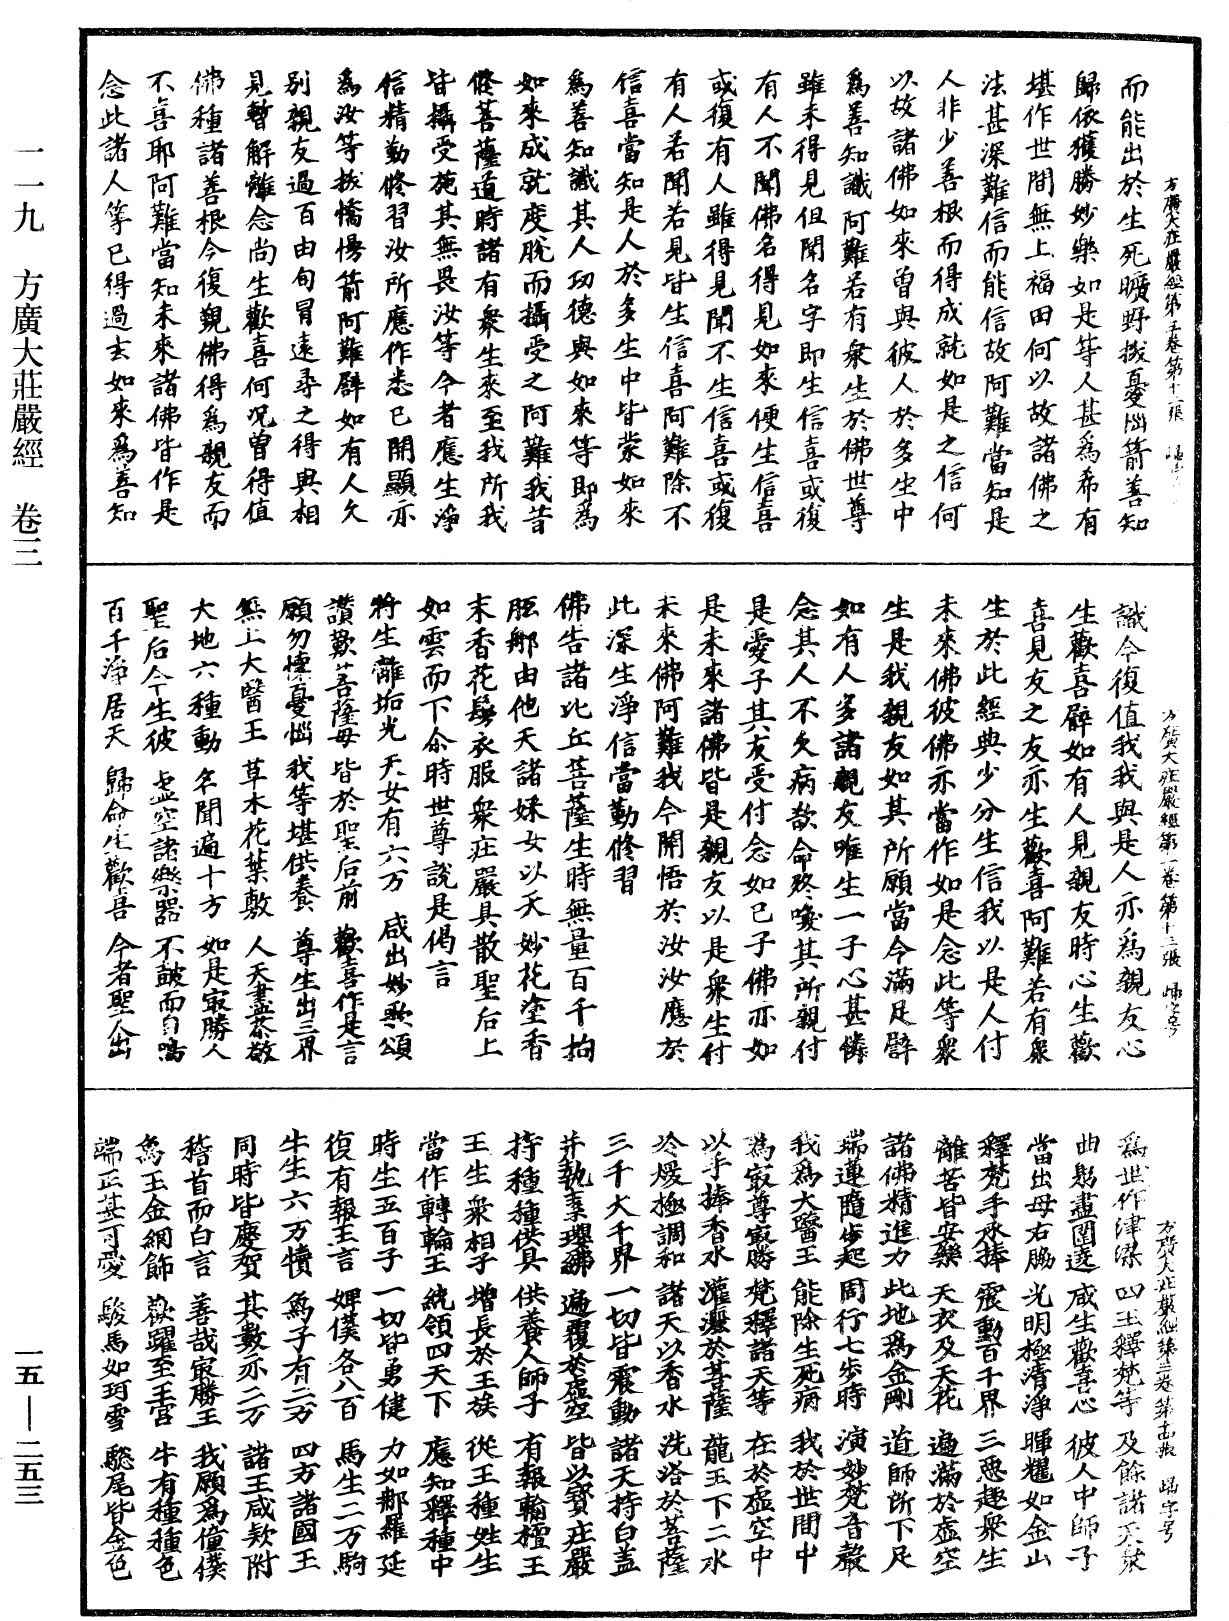 一一九　方廣大莊嚴經　卷三
一五——二五三
而能出於生死曠野拔憂惱箭善知
歸依獲勝妙樂如是等人甚為希有
堪作世間無上福田何以故諸佛之
法甚深難信而能信故阿難當知是
人非少善根而得成就如是之信何
以故諸佛如來曾與彼人於多生中
為善知識阿難若有衆生於佛世尊
雖未得見但聞名字即生信喜或復
有人不聞佛名得見如來便生信喜
或復有人雖得見聞不生信喜或復
有人若聞若見皆生信喜阿難除不
信喜當知是人於多生中皆蒙如來
為善知識其人功德與如來等即為
如來成就度脫而攝受之阿難我昔
修菩薩道時諸有衆生來至我所我
皆攝受施其無畏汝等今者應生淨
信精勤修習汝所應作悉已開顯亦
為汝等拔憍慢箭阿難譬如有人欠
別親友過百由旬冒遠尋之得與相
見暫解離念尚生歡喜何況曾得值
佛種諸善根今復覲佛得為親友而
不喜耶阿難當知未來諸佛皆作是
念此諸人等已得過去如來為善知
方廣大莊嚴經第三卷第十三張
識今復值我我與是人亦為親友心
生歡喜譬如有人見親友時心生歡
喜見友之友亦生歡喜阿難若有衆
生於此經典少分生信我以是人付
未來佛彼佛亦當作如是念此等衆
生是我親友如其所願當令滿足譬
如有人多諸親友唯生一子心甚憐
念其人不久病欲命終喚其所親付
是愛子其友受付念如己子佛亦如
是未來諸佛皆是親友以是衆生付
未來佛阿難我今開悟於汝汝應於
此深生淨信當勤修習
佛告諸比丘菩薩生時無量百千拘
胝那由他天諸婇女以天妙花塗香
末香花鬘衣服衆莊嚴具散聖后上
如雲而下尒時世尊說是偈言
將生離垢光　天女有六万　咸出妙歌頌
讚歎菩薩母　皆於聖后前　歡喜作是言
願勿懷憂惱　我等堪供養　尊生出三界
無上大醫王　草木花葉敷　人天盡恭敬
大地六種動　名聞遍十方　如是寂勝人
聖后今生彼　虛空諸樂器　不鼓而自鳴
百千淨居天　歸命生歡喜　今者聖人出
為世作津梁　四王釋梵等　及餘諸天衆
曲躬盡圍遶　咸生歡喜心　彼人中師子
當出母右脇　光明極清淨　暉耀如金山
釋梵手承捧　震動百千界　三惡趣衆生
離苦皆安樂　天衣及天花　遍滿於虛空
諸佛精進力　此地為金剛　道師所下足
瑞蓮隨步起　周行七步時　演妙梵音聲
我為大醫王　能除生死病　我於世間中
為寂尊寂勝　梵釋諸天等　在於虛空中
以手捧香水　灌灑於菩薩　龍王下二水
冷煖極調和　諸天以香水　洗浴於菩薩
三千大千界　一切皆震動　諸天持白盖
并執素瓔珞　遍覆於虛空　皆以寶莊嚴
持種種供具　供養人師子　有報輸檀王
王生衆相子　增長於王族　從王種姓生
當作轉輪王　統領四天下　應知釋種中
時生五百子　一切皆勇健　力如那羅延
復有報王言　婢僕各八百　馬生二万駒
牛生六万犢　為子有二万　四方諸國王
同時皆慶賀　其數亦二万　諸王咸欵附
稽首而白言　善哉寂勝王　我願為僮僕
為王金網飾　歡躍至王宮　牛有種種色
端正甚可愛　駿馬如珂雪　騣尾皆金色